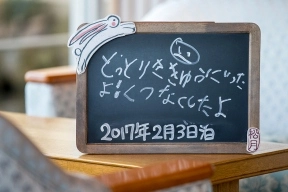 どっとりさきゅうにいった
よ!くつなくしたよ
2017年2月3日泊
松月